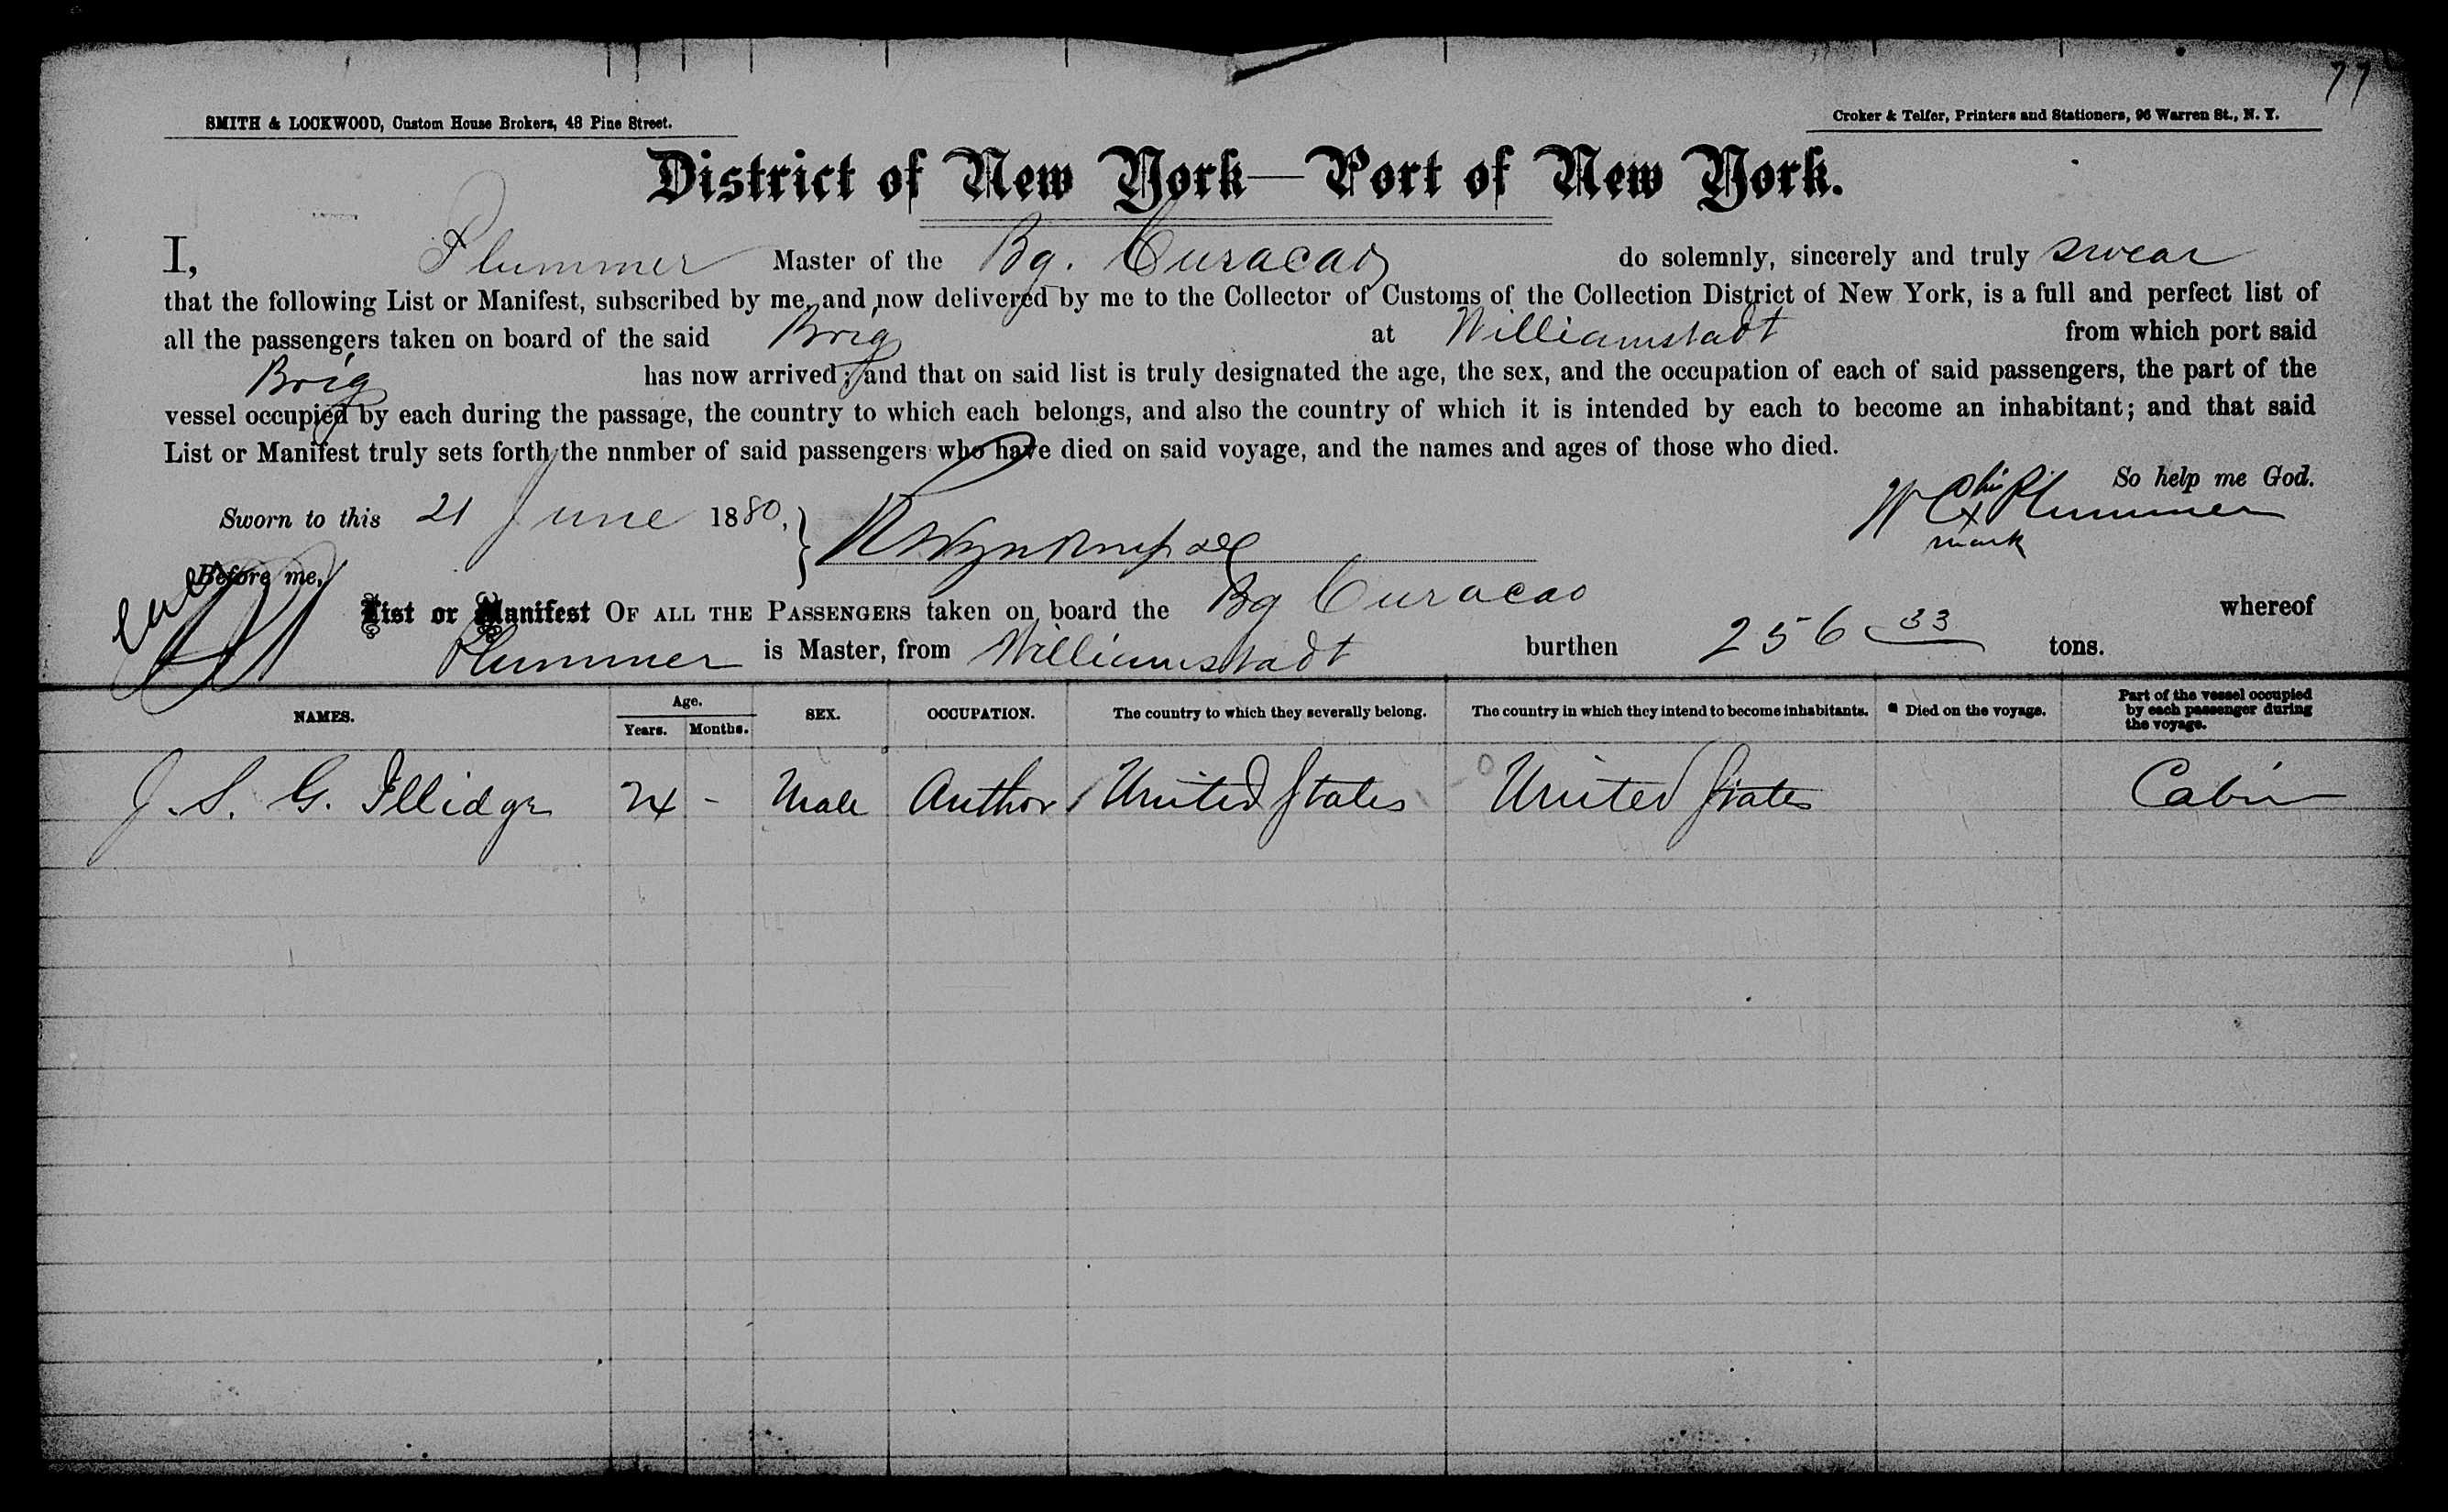 77
SMITH & LOCKWOOD, Custom House Brokers, 48 Pine Street.
Croker & Telfer, Printers and Stationers, 96 Warren St., N. Y.
District of New York—Port of New York.
I, Plummer Master of the Bg. Curacao do solemnly, sincerely and truly swear
that the following List or Manifest, subscribed by me, and now delivered by me to the Collector of Customs of the Collection District of New York, is a full and perfect list of
all the passengers taken on board of the said Brig at Williamstadt from which port said
Brig has now arrived; and that on said list is truly designated the age, the sex, and the occupation of each of said passengers, the part of the
vessel occupied by each during the passage, the country to which each belongs, and also the country of which it is intended by each to become an inhabitant; and that said
List or Manifest truly sets forth the nnmber of said passengers who have died on said voyage, and the names and ages of those who died.
So help me God.
his
Sworn to this 21 June 1880,
W C x Plummer
mark
Before me,
List or Manifest OF ALL THE PASSENGERS taken on board the Bg Curacao whereof
Plummer is Master, from Williamstadt burthen 256 33 tons.
NAMES. Age. Years. Months. SEX. OCCUPATION. The country to which they severally belong. The country in which they intend to become inhabitants. Died on the voyage. Part of the vessel occupied by each passenger during the voyage.
J. S. G. Illidge 24 - Male Author United States United States Cabin